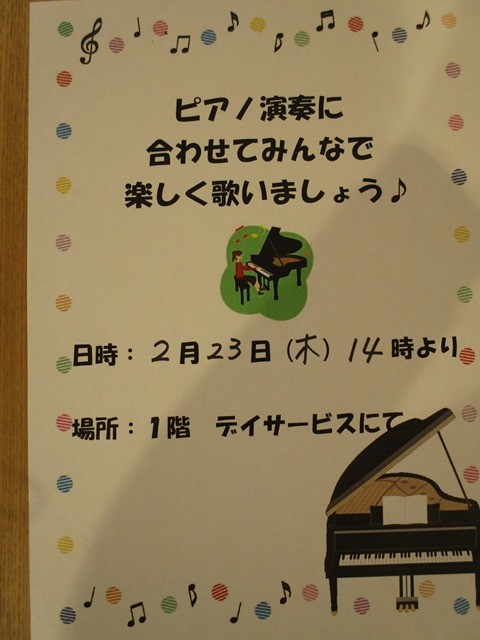 ピアノ演奏に
合わせてみんなで
楽しく歌いましょう♪
日時：2月23日（木）14時より
場所：1階　デイサービスにて